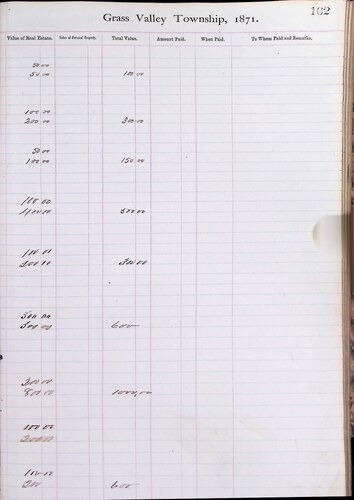 162
Grass Valley Township, 1871.
Value of Real Estate. Value of Personal Property. Total Value. Amount Paid. When Paid. To Whom Paid and Remarks.
50 00
50 00 100 00
100 00
200 00 300 00
50 00
100 00 150 00
100 00
400 00 500 00
100 00
200 00 300 00
500 00 600
200 00
800 00 1000,00
100 00
200 00
100 00
200 600